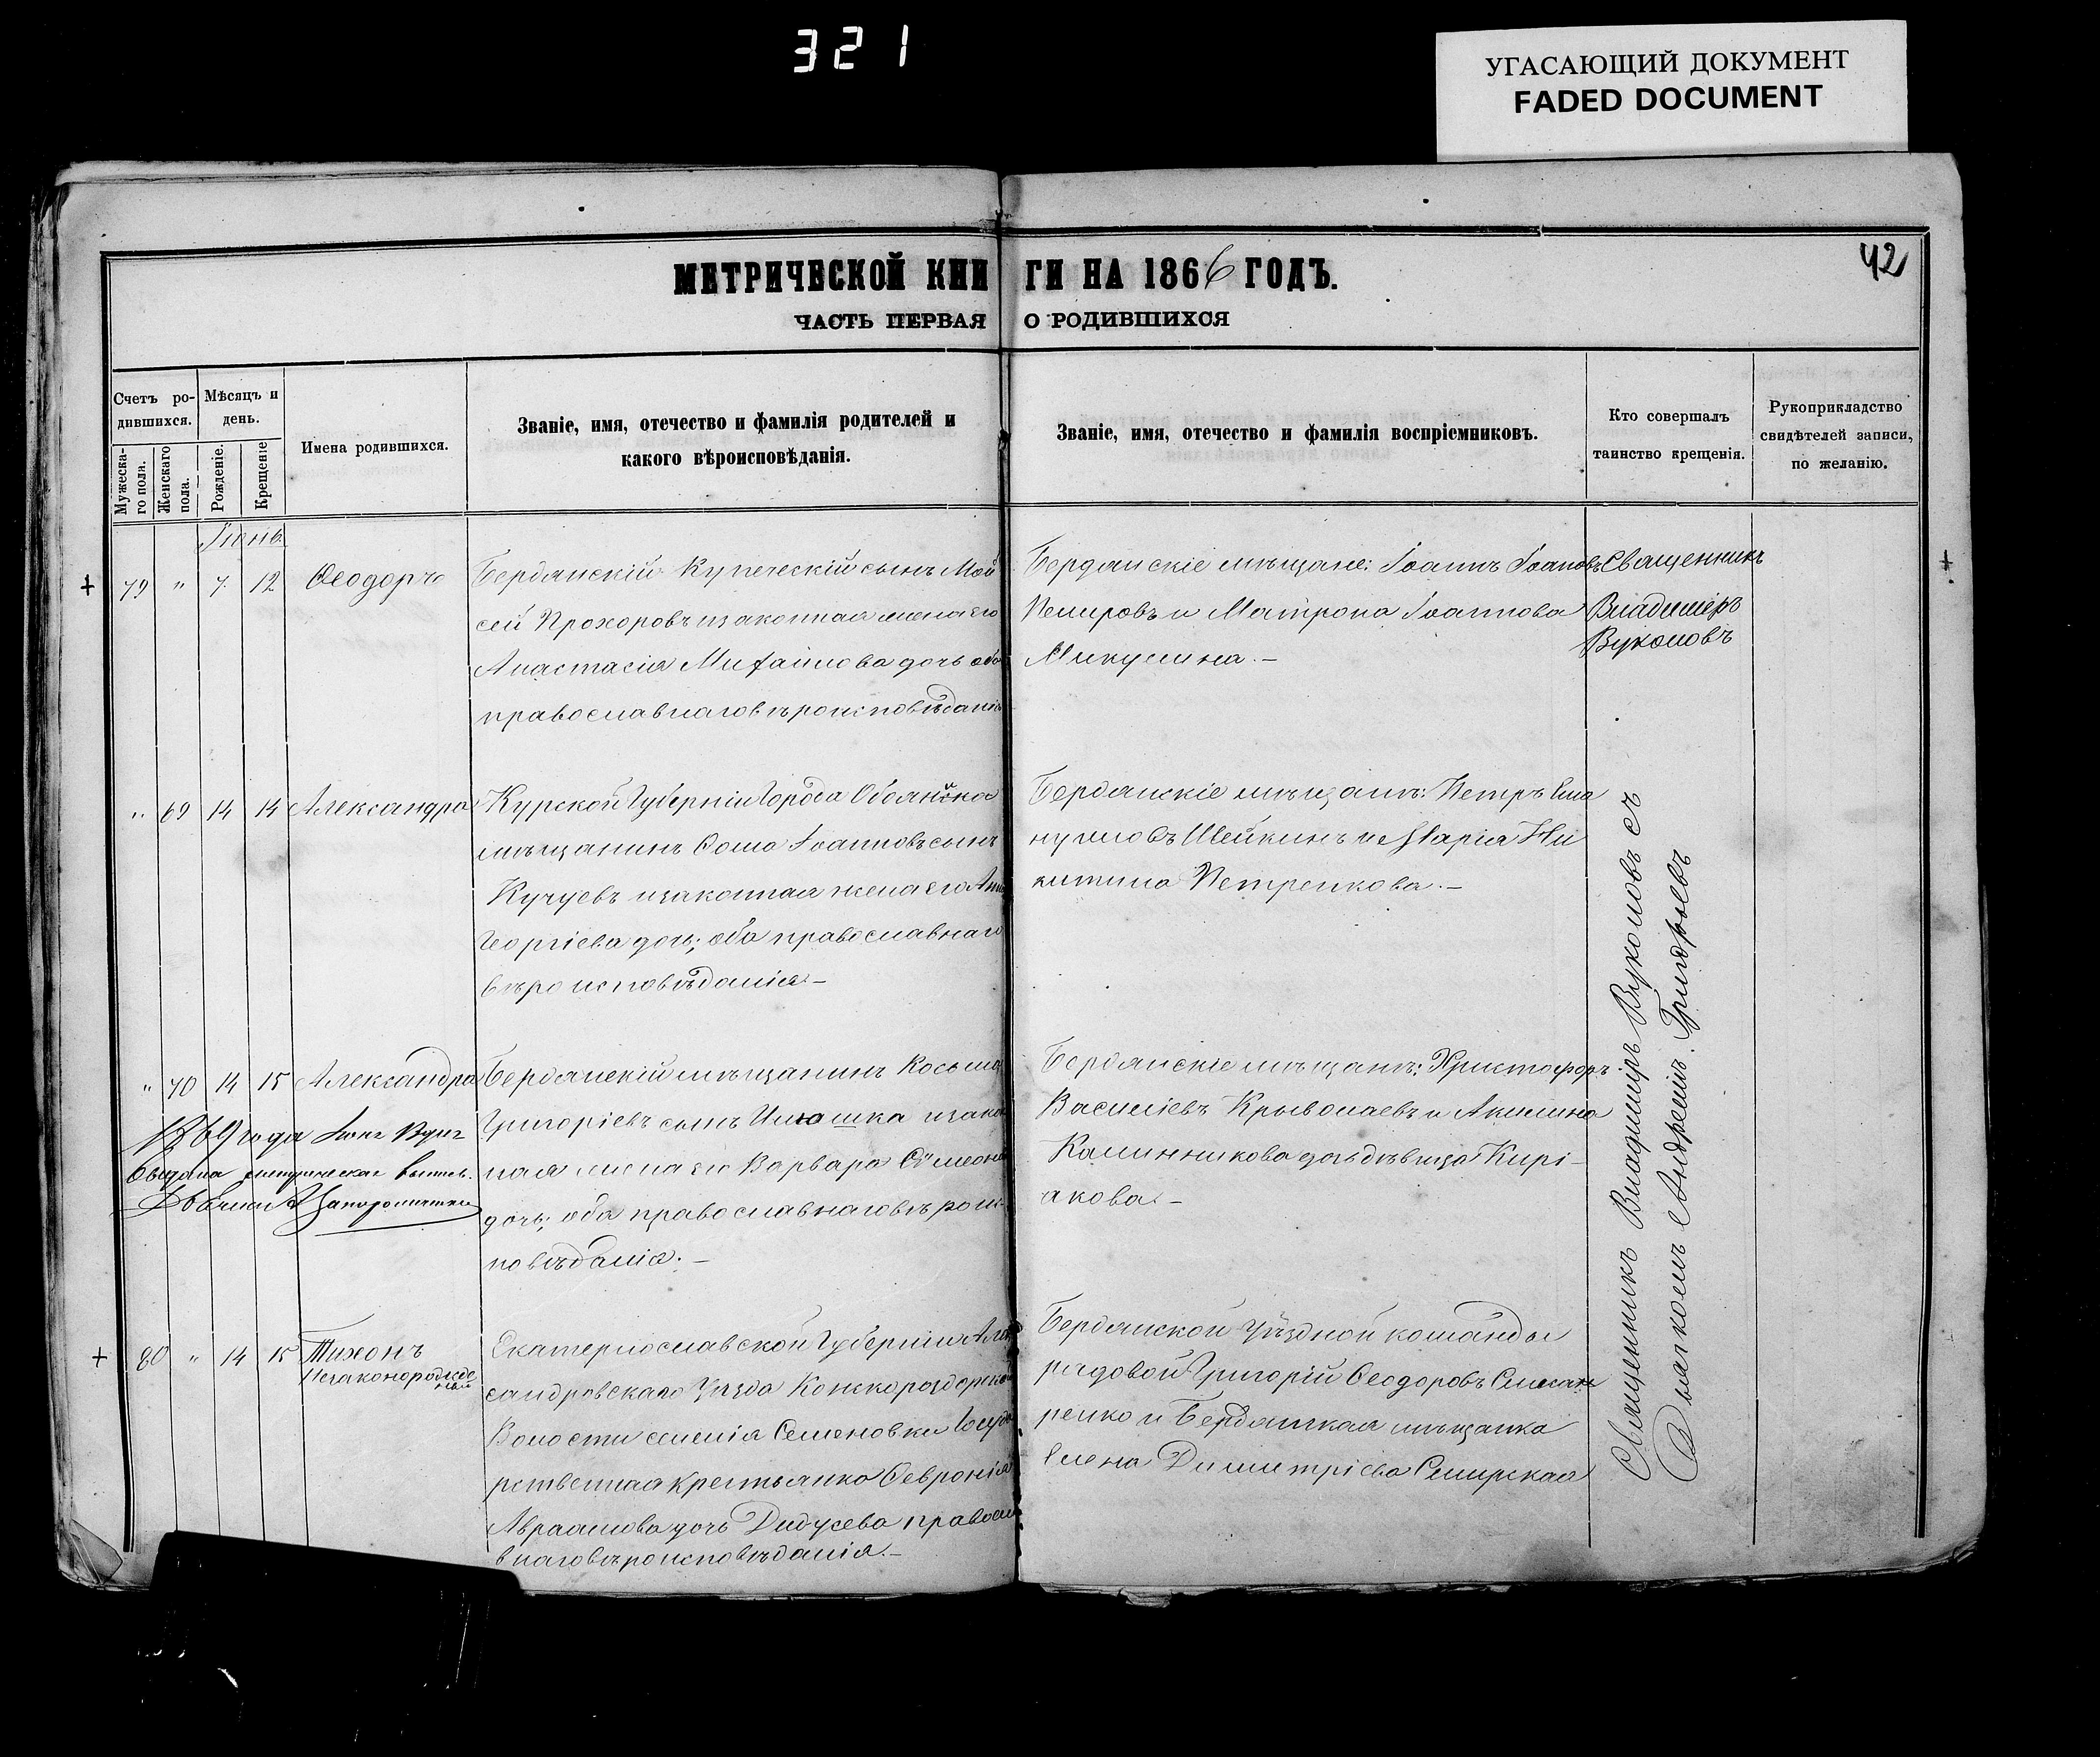 321
УГАСАЮЩИЙ ДОКУМЕНТ
FADED DOCUMENT
42
МЕТРИЧЕСКОЙ КНИГИ НА 1866 ГОДЪ.
ЧАСТЬ ПЕРВАЯ О РОДИВШИХСЯ
Счетъ ро-
дившихся.
Мужеска-
го пола.
Женскаго
пола.
Мѣсяцъ и
день.
Рожденіе.
Крещеніе
Имена родившихся.
Званіе, имя, отечество и фамилія родителей и
какого вѣроисповѣданія.
Званіе, имя, отечество и фамилія воспріемниковъ.
Кто совершалъ
таинство крещенія.
Рукоприкладство
свидѣтелей записи,
по желанію.
Іюнь
79 " 7 12 Ѳеодоръ
Бердянскій Купеческій сынъ Мой
сей Прохоровъ и законная жена его
Анастасія Михайлова дочь оба
православнаго вѣроисповѣданія
Бердянскіе мѣщане: Іоаннъ Іоановъ
и Матрона Іоаннова
Микулина.—
Священникъ
Владиміръ
Вуколовъ
" 69 14 14 Александра
Курской Губерніи Города Обоянска
мѣщанинъ Ѳома Іоанновъ сынъ
Кучуевъ и законная жена его
Георгіева дочь; оба православнаго
вѣроисповѣданія—
Бердянскіе мѣщане: Петръ Ема
нуиловъ Шейкинъ и Марія Ни
китина Петренкова.—
" 70 14 15 Александра
Бердянскій мѣщанинъ Косьма
Григоріевъ сынъ Илюшка и закон
ная жена его Варвара Сѵмеонова
дочь; оба православнаго вѣроис-
повѣданія.—
1869 года
выдана метрическая выпись.
Бердянскіе мѣщане: Христофоръ
Василіевъ и Акилина
Калинникова дочь дѣвица Кирі-
акова—
80 " 14 15 Тихонъ
незаконорожде
ный
Екатеринославской Губерніи Алек
сандровскаго Уѣзда Конскораздорской
Волости селенія Семеновки Госуда
рственная крестьянка Ѳевронія
Авраамова дочь Дидусева правосла
внаго вѣроисповѣданія.—
Бердянской Уѣздной команды
рядовой Григорій Ѳеодоровъ
и Бердянская мѣщанка
Елена Димитріева
Священникъ Владиміръ Вуколовъ съ
Дьякомъ Андреемъ Григорьевъ